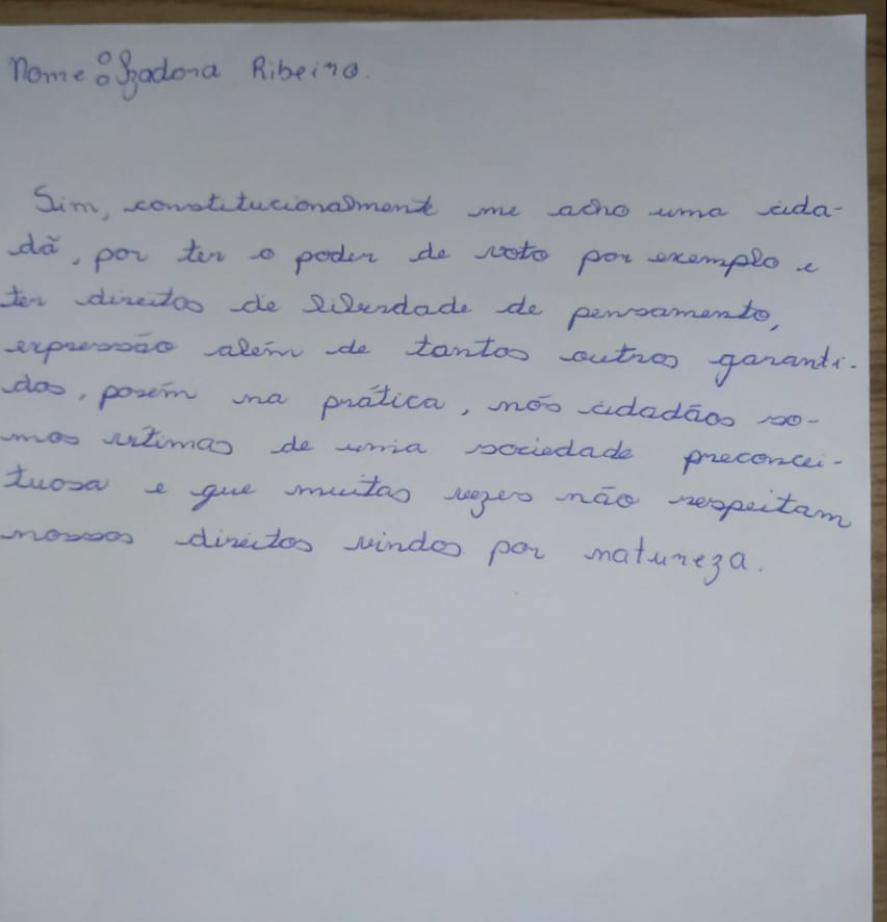 Nome: Izadora Ribeiro.
Sim, constitucionalmente me acho uma cida-
dã, por ter o poder de voto por exemplo e
ter direitos de liberdade de pensamento,
expressão além de tantos outros garanti-
dos, porém na prática, nós cidadãos so-
mos vítimas de uma sociedade preconcei-
tuosa e que muitas vezes não respeitam
nossos direitos vindos por natureza.